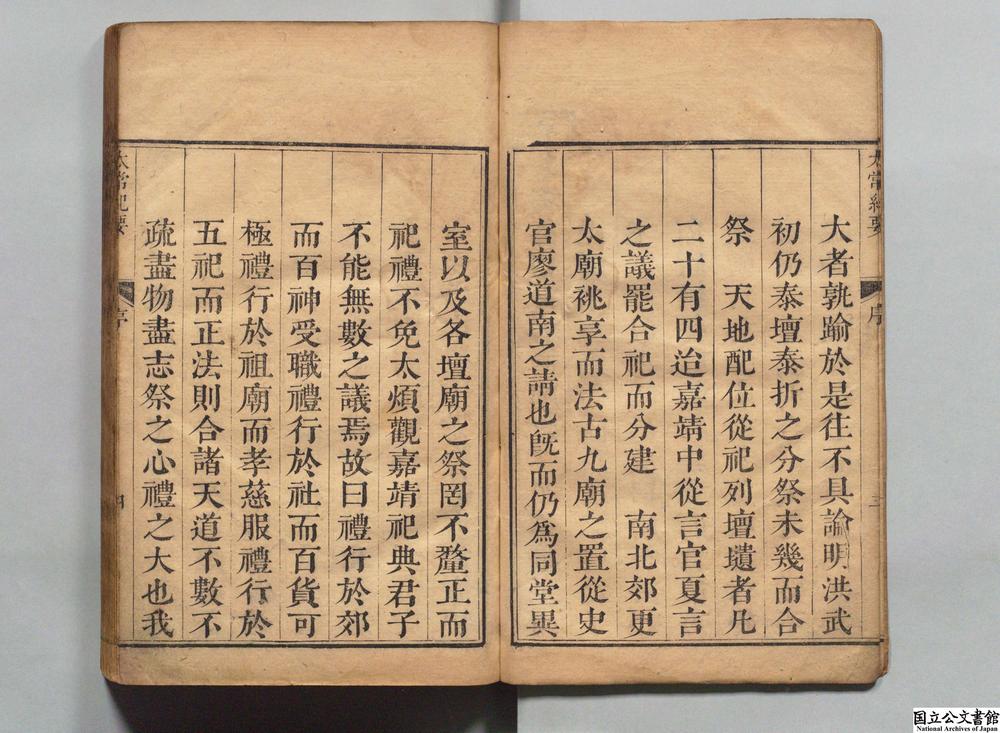 太常紀要
序
三
大者孰踰於是往不具論明洪武
初仍泰壇泰折之分祭未幾而合
祭　天地配位從祀列壇壝者凡
二十有四迨嘉靖中從言官夏言
之議罷合祀而分建　南北郊更
太廟祧享而法古九廟之置從史
官廖道南之請也旣而仍爲同堂異
室以及各壇廟之祭罔不釐正而
祀禮不免太煩觀嘉靖祀典君子
不能無數之議焉故曰禮行於郊
而百神受職禮行於社而百貨可
極禮行於祖廟而孝慈服禮行於
五祀而正法則合諸天道不數不
疏盡物盡志祭之心禮之大也我
太常紀要
序
四
国立公文書館
National Archives of Japan